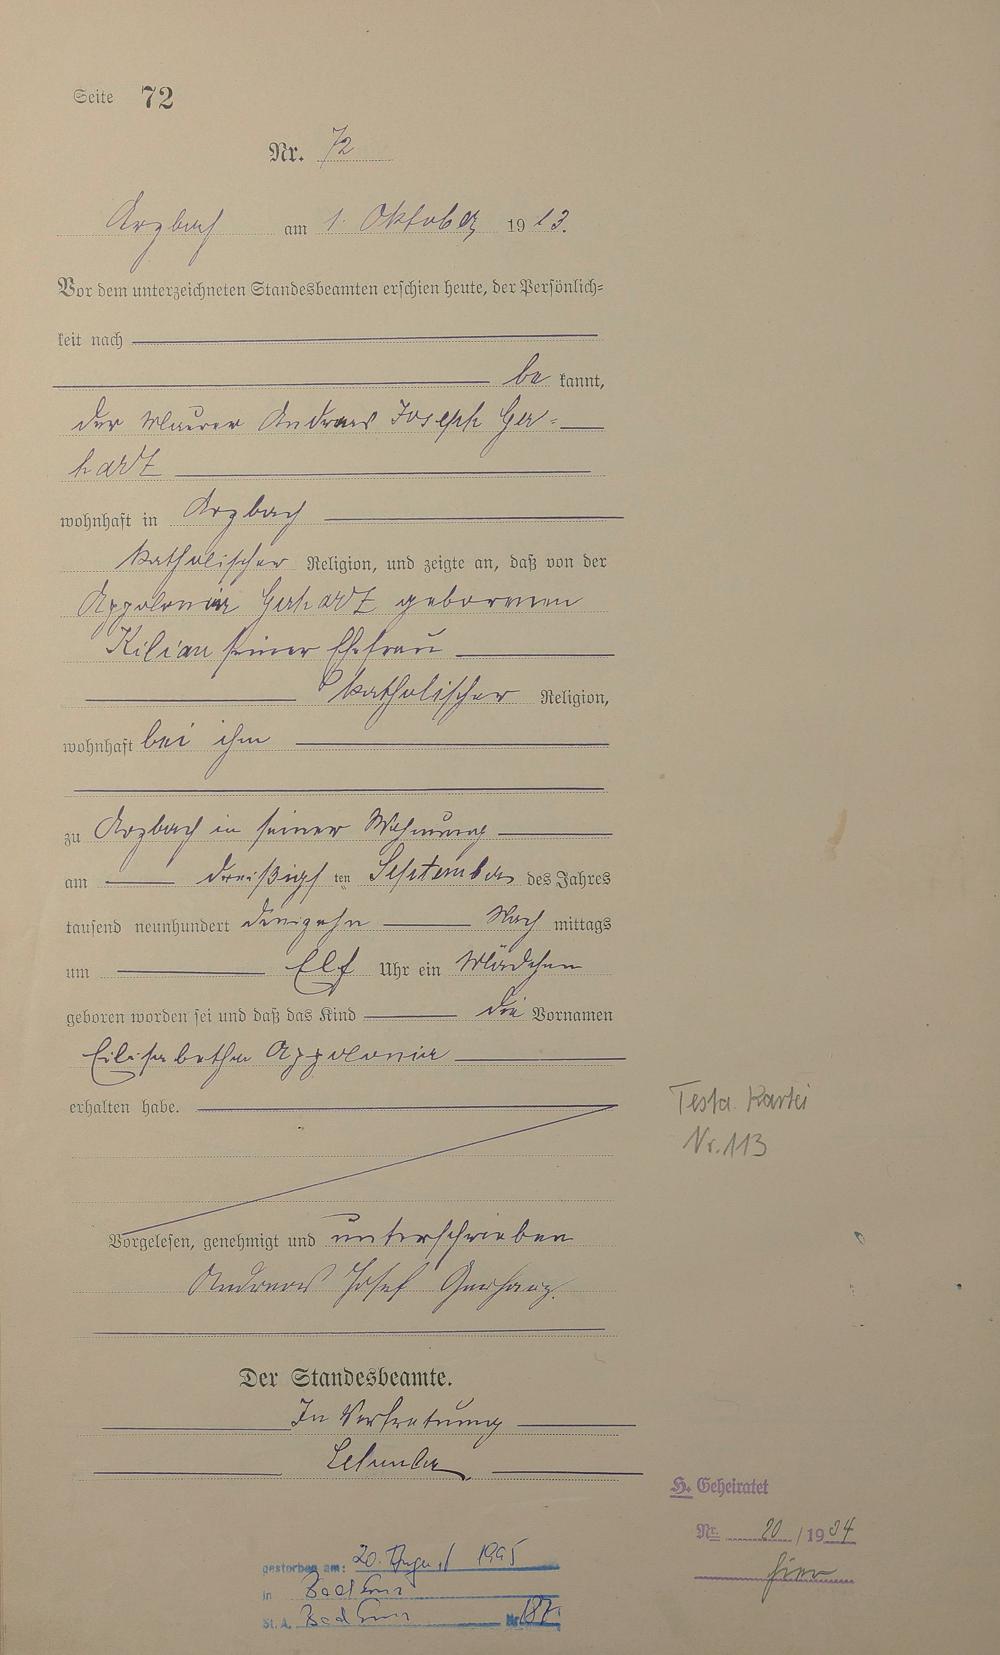 Seite 72
Nr. 72
Arzbach am 1. Oktober 1913.
Vor dem unterzeichneten Standesbeamten erschien heute, der Persönlich=
keit nach
be kannt,
der Maurer Andreas Joseph Ger=
hartz
wohnhaft in Arzbach
katholischer Religion, und zeigte an, daß von der
Appolonia Gerhartz geborenen
Kilian seiner Ehefrau
katholischer Religion,
wohnhaft bei ihm
zu Arzbach in seiner Wohnung
am dreißigs ten September des Jahres
tausend neunhundert dreizehn Nach mittags
um Elf Uhr ein Mädchen
geboren worden sei und daß das Kind die Vornamen
Elisabetha Appolonia
erhalten habe.
Testa. Kartei
Nr. 113
Vorgelesen, genehmigt und unterschrieben
Andreas Josef Gerharz.
Der Standesbeamte.
In Vertretung
H. Geheiratet
Nr. 20 / 1934
hier
gestorben am: 20. August 1995
in Bad Ems
St. A. Bad Ems Nr. 187